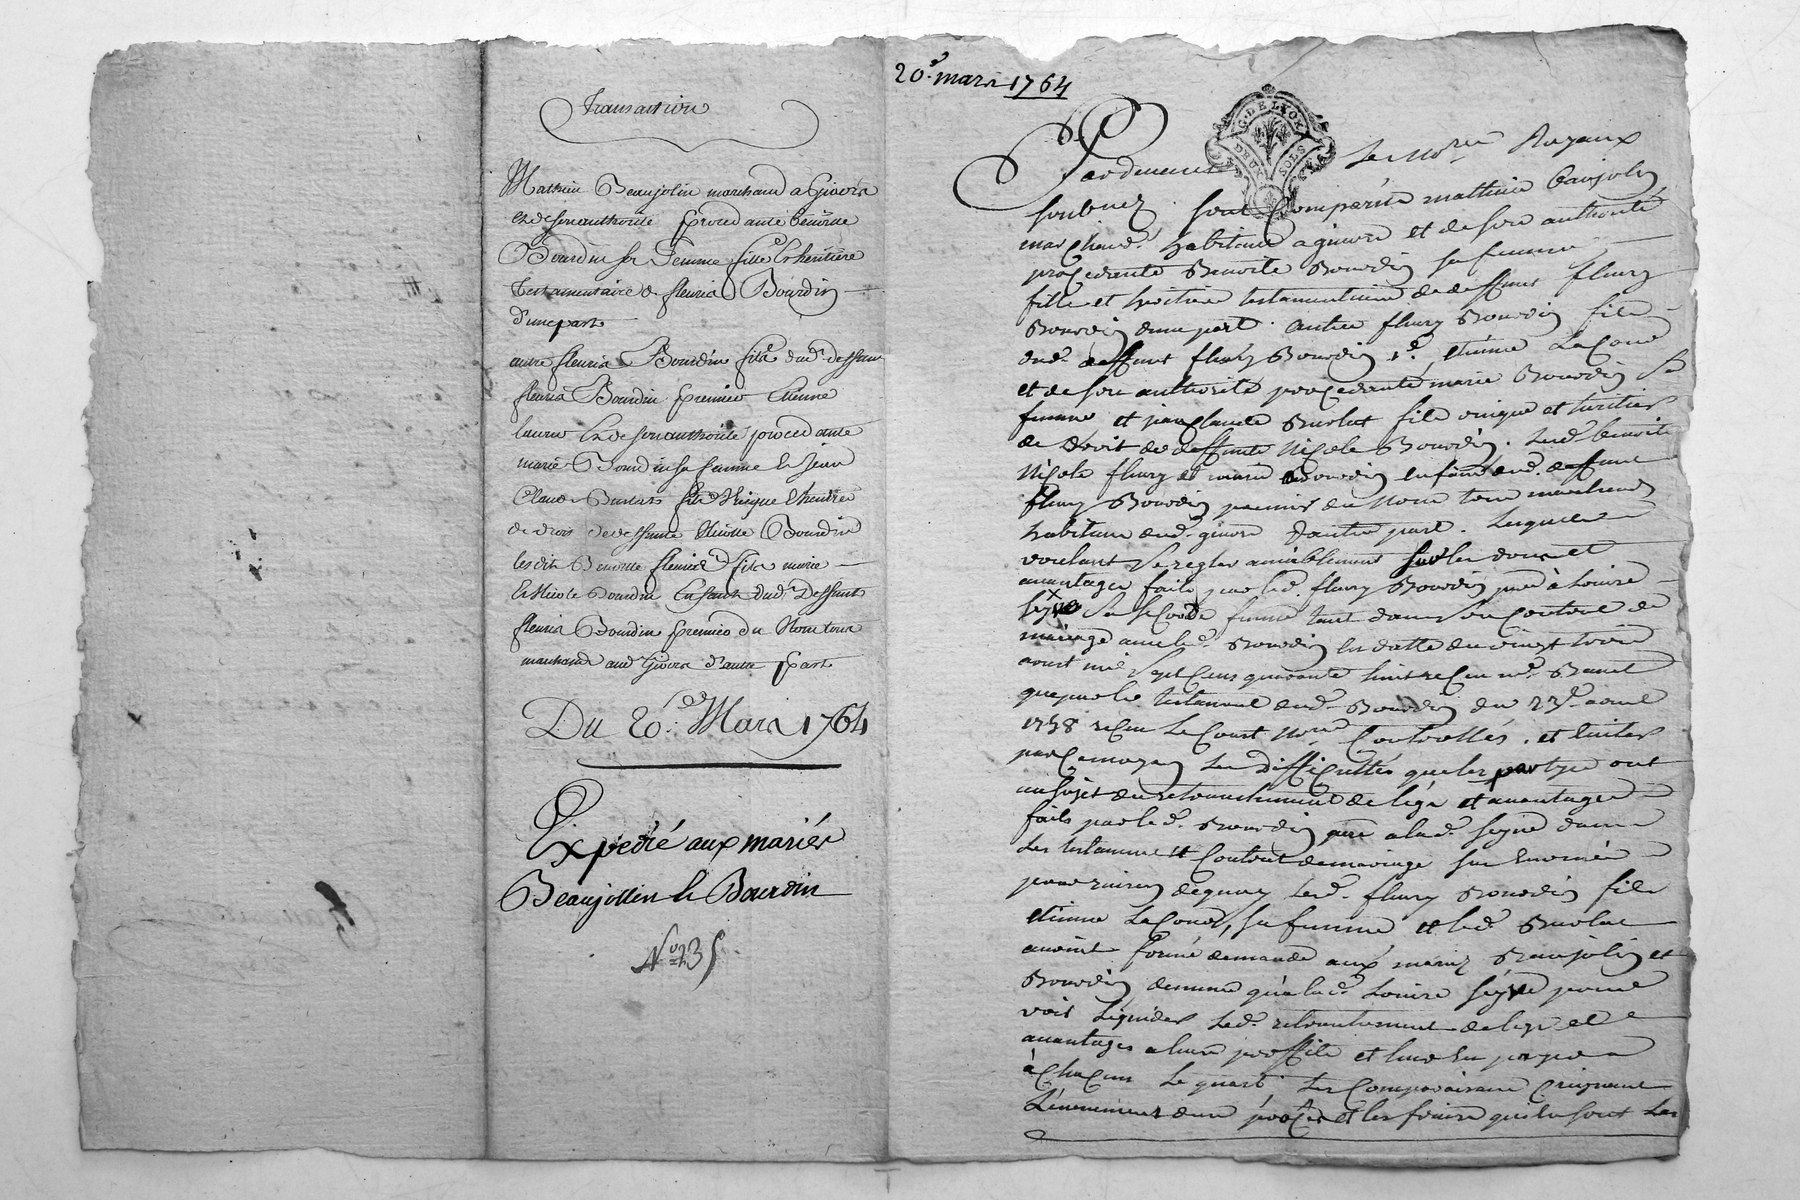 Transaction
Mathieu Beaujolin marchand a Givors
et de son authorité procedante benoitte
Bourdin sa Femme fille et heritiere
testamentaire de fleurie Bourdin
d'une part
autre fleurie Bourdin fils dud. deffunt
fleurie Bourdin premier Etienne
et de son authorité procedante
marie Bourdin sa femme et Jean
Claude fils Unique et heritier
de droit de deffunte Nicolle Bourdin
lesdits Benoitte fleurie fils marie
et Nicole Bourdin Enfants dud. Deffunt
fleurie Bourdin premier du Nom tous
marchands aud. Givors d'autre part
Du 20e Mars 1764
Expedié aux mariés
Beaujollin et Bourdin
No. 135
20e. mars 1764
G. DE LYON
DEUX SOLS
Pardevant les Nores. Royaux
soubnez sont Comparus mathieu baujolin
marchand habitant a givord et de son authorité
procedante Benoite Bourdin sa femme
fille et heritiere testamentaire de deffunt fleury
Bourdin d'une part. autre fleury Bourdin fils
dud. deffunt fleury Bourdin 1er. etienne
et de son authorité procedante marie Bourdin sa
femme et jean claude fils unique et heritier
de droit de deffunte Nicole Bourdin. lesd. benoite
Nicole fleury et marie Bourdin enfans dud. deffunt
fleury Bourdin premier du Nom tous marchands
habitans aud. givord d'autre part. lesquels
voulant se regler amiablement sur les dons et
avantages faits par led. fleury Bourdin pere à Louise
sa seconde femme tant dans son Contrat de
mariage avec led. Bourdin en datte du vingt trois
aoust mil sept cens quarante huit recu me.
que par le testament dud. Bourdin du 23e. aoust
1758 recu Lecourt Nore. Controllés. et eviter
par ce moyen les difficultés que les partyes ont
au sujet du retranchement de legs et avantages
faits par led. Bourdin pere a lad. dans
les testament et Contrat de mariage
pour raison de quoy led. fleury Bourdin fils
etienne sa femme et led.
avoient formé demande aux mariez Beaujolin et
Bourdin de même qu'a lad. Louise pour
voir liquider led. retranchement de legs et
avantages a leur proffit et leur en
à chacun le quart. les Comparaissans Craignant
L'evenement d'un procès et les frais qu'ils sont les